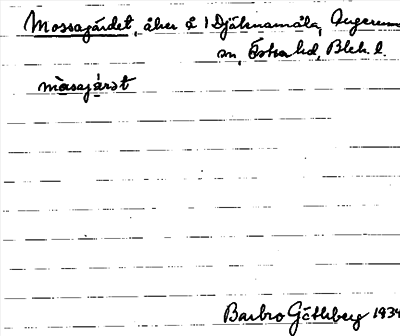 Mossagärdet, åker å 1 Djäknamåla, Augerums
sn, Östra hd, Blek. l.
màsajä́rət
Barbro Göthberg 1934